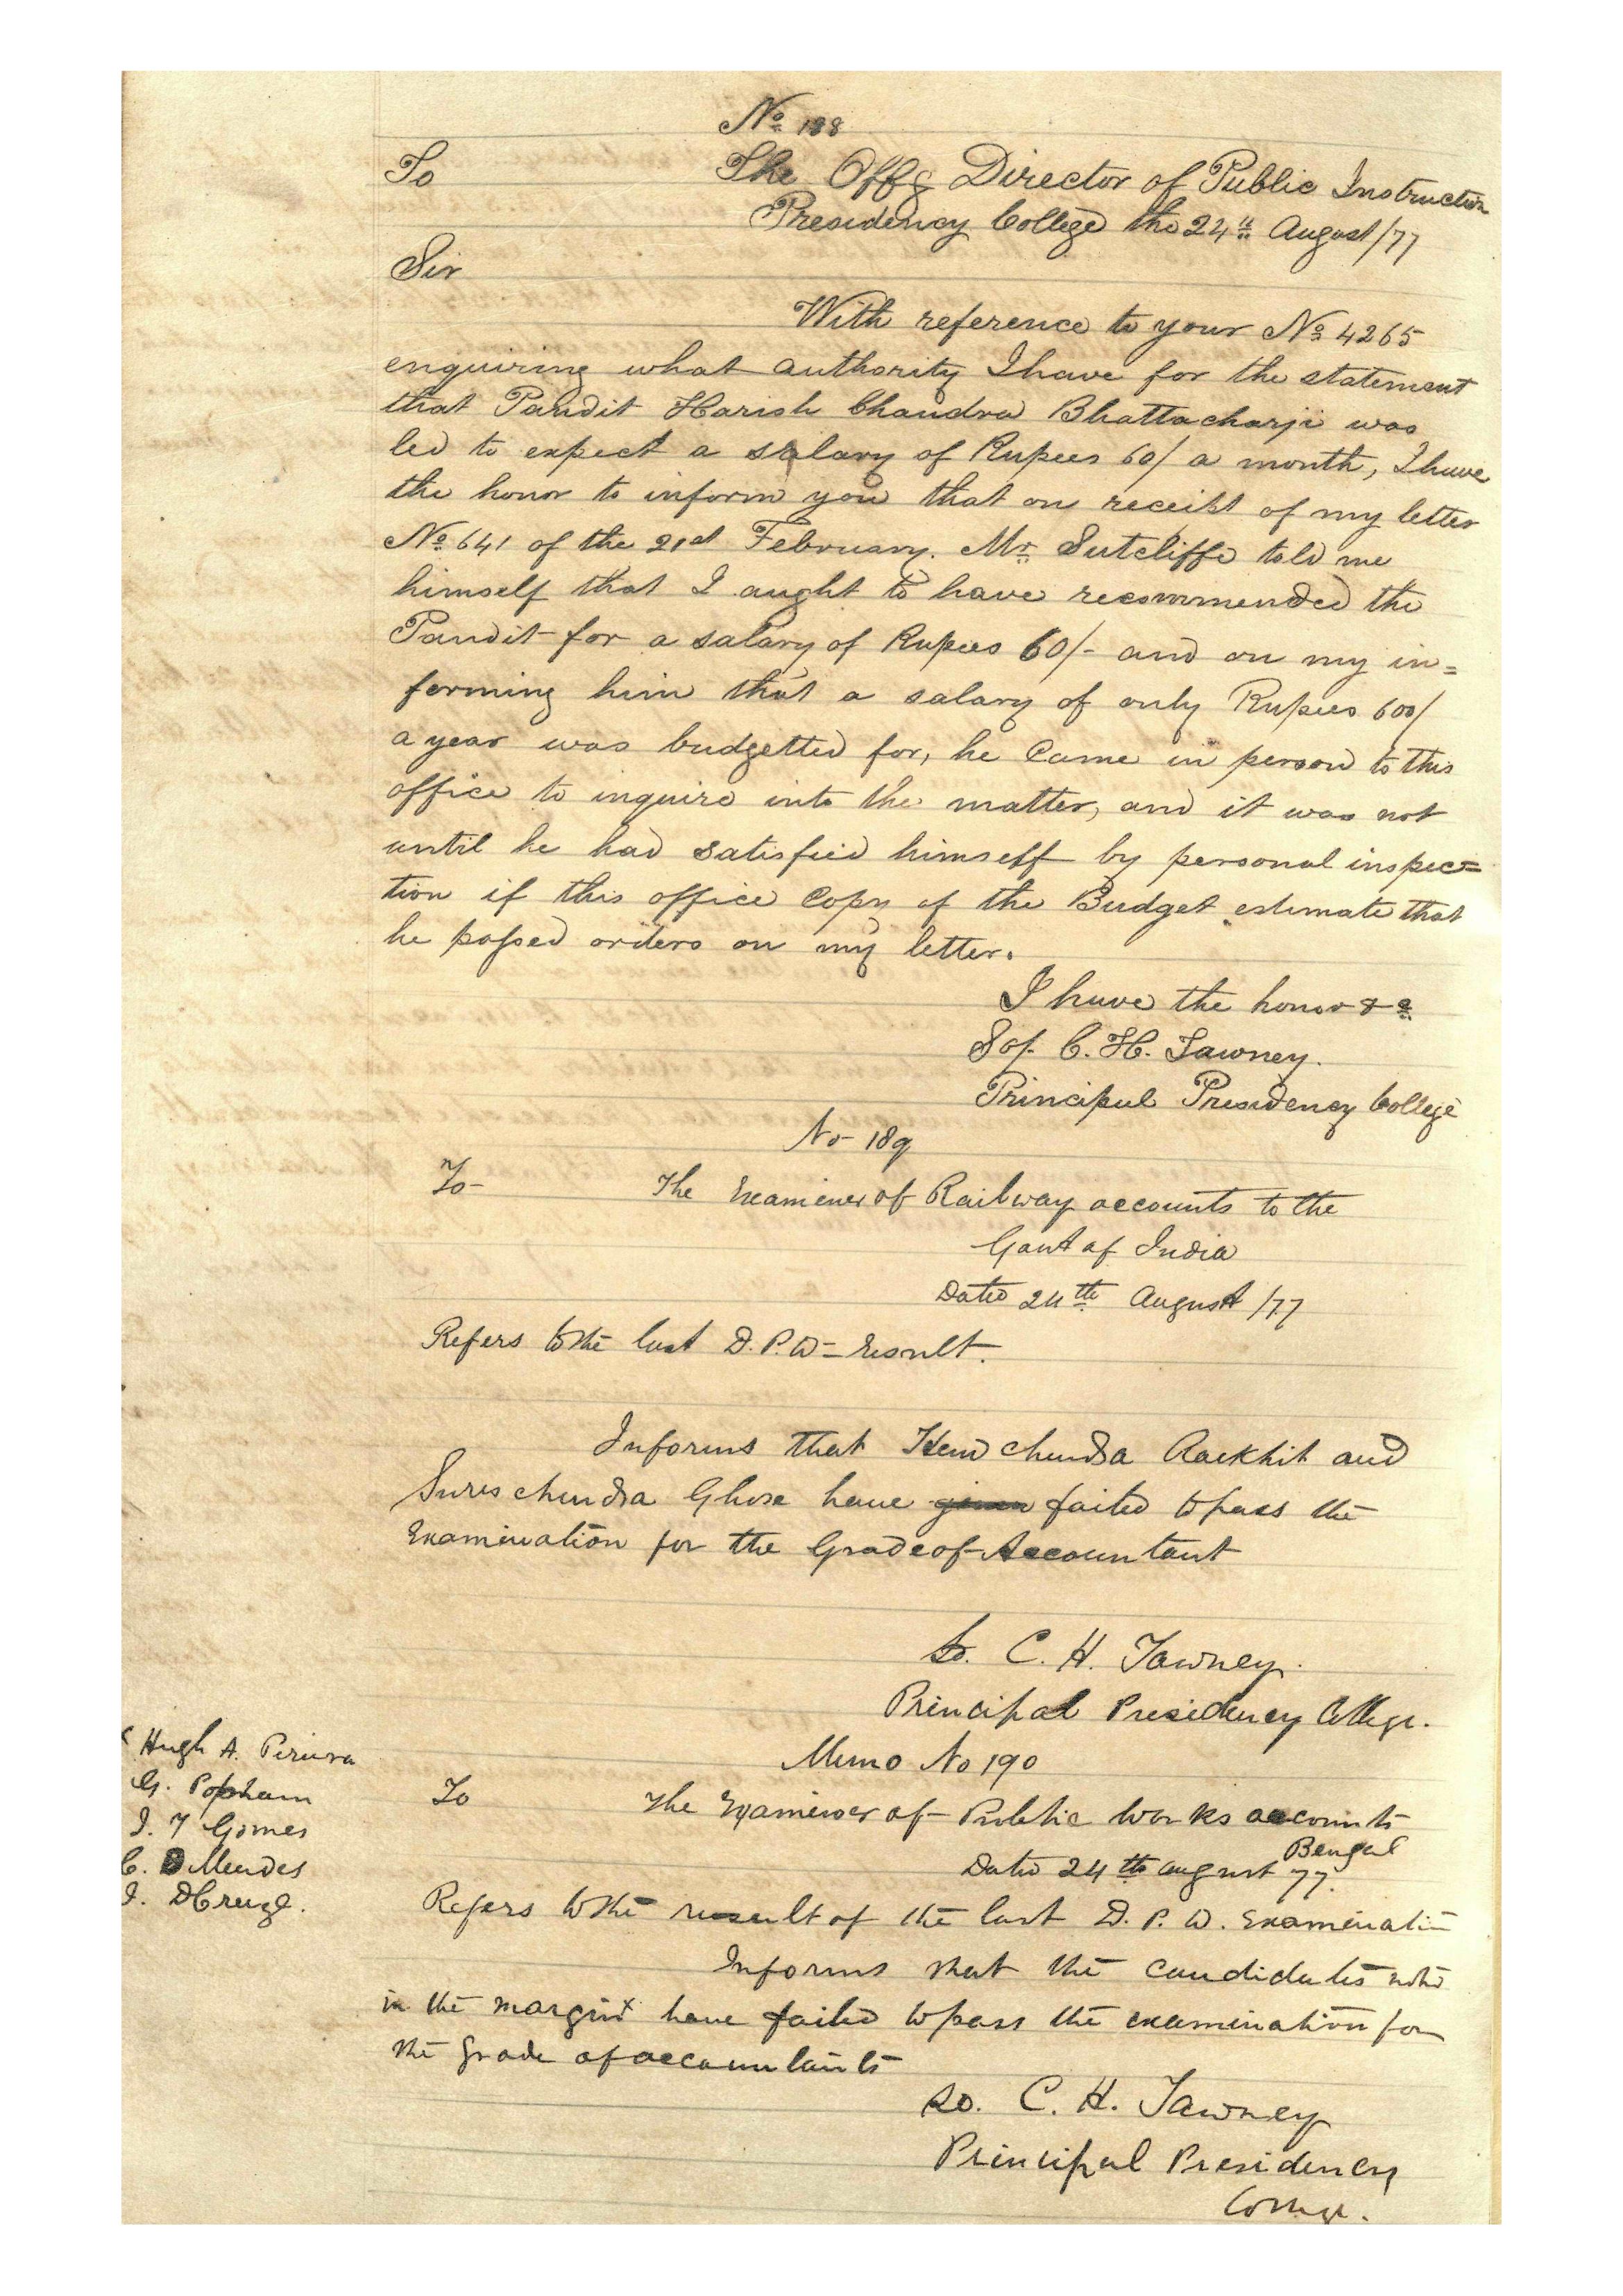 No 188
To The Offg Director of Public Instruction
Presidency College the 24th August/77
Sir
With reference to your No 4265
enquiring what authority I have for the statement
that Pandit Harish Chandra Bhattacharji was
led to expect a salary of Rupees 60/ a month, I have
the honor to inform you that on receipt of my letter
No 641 of the 21st February. Mr Sutcliffe told me
himself that I aught to have recommended the
Pandit for a salary of Rupees 60/- and on my in=
forming him that a salary of only Rupees 600/
a year was budgetted for, he Came in person to this
office to inquire into the matter, and it was not
until he had satisfied himself by personal inspec=
tion if this office Copy of the Budget estimate that
he passed orders on my letter.
I have the honor &c
Sd/- C. H. Tawney.
Principal Presidency College
No- 189
To- The Examiner of Railway accounts to the
Govt of India
Dated 24th August /77
Refers to the last D. P. W= result.
Informs that Hem chundra Rackhit and
Sures chundra Ghose have given failed to pass the
Examination for the Grade of Accountant
Sd. C. H. Tawney.
Principal Presidency College.
Memo No 190
To The Examiner of Public Works accounts
Bengal
Dated 24th august 77.
Refers to the result of the last D. P. W. Examination
Informs that the candidates noted
in the margin x have failed to pass the examination for
the Grade of accountants
Sd. C. H. Tawney
Principal Presidency
College.
Hugh A. Periera
G. Popham
I. F Gomes
C. D Mendes
I. DCruze.